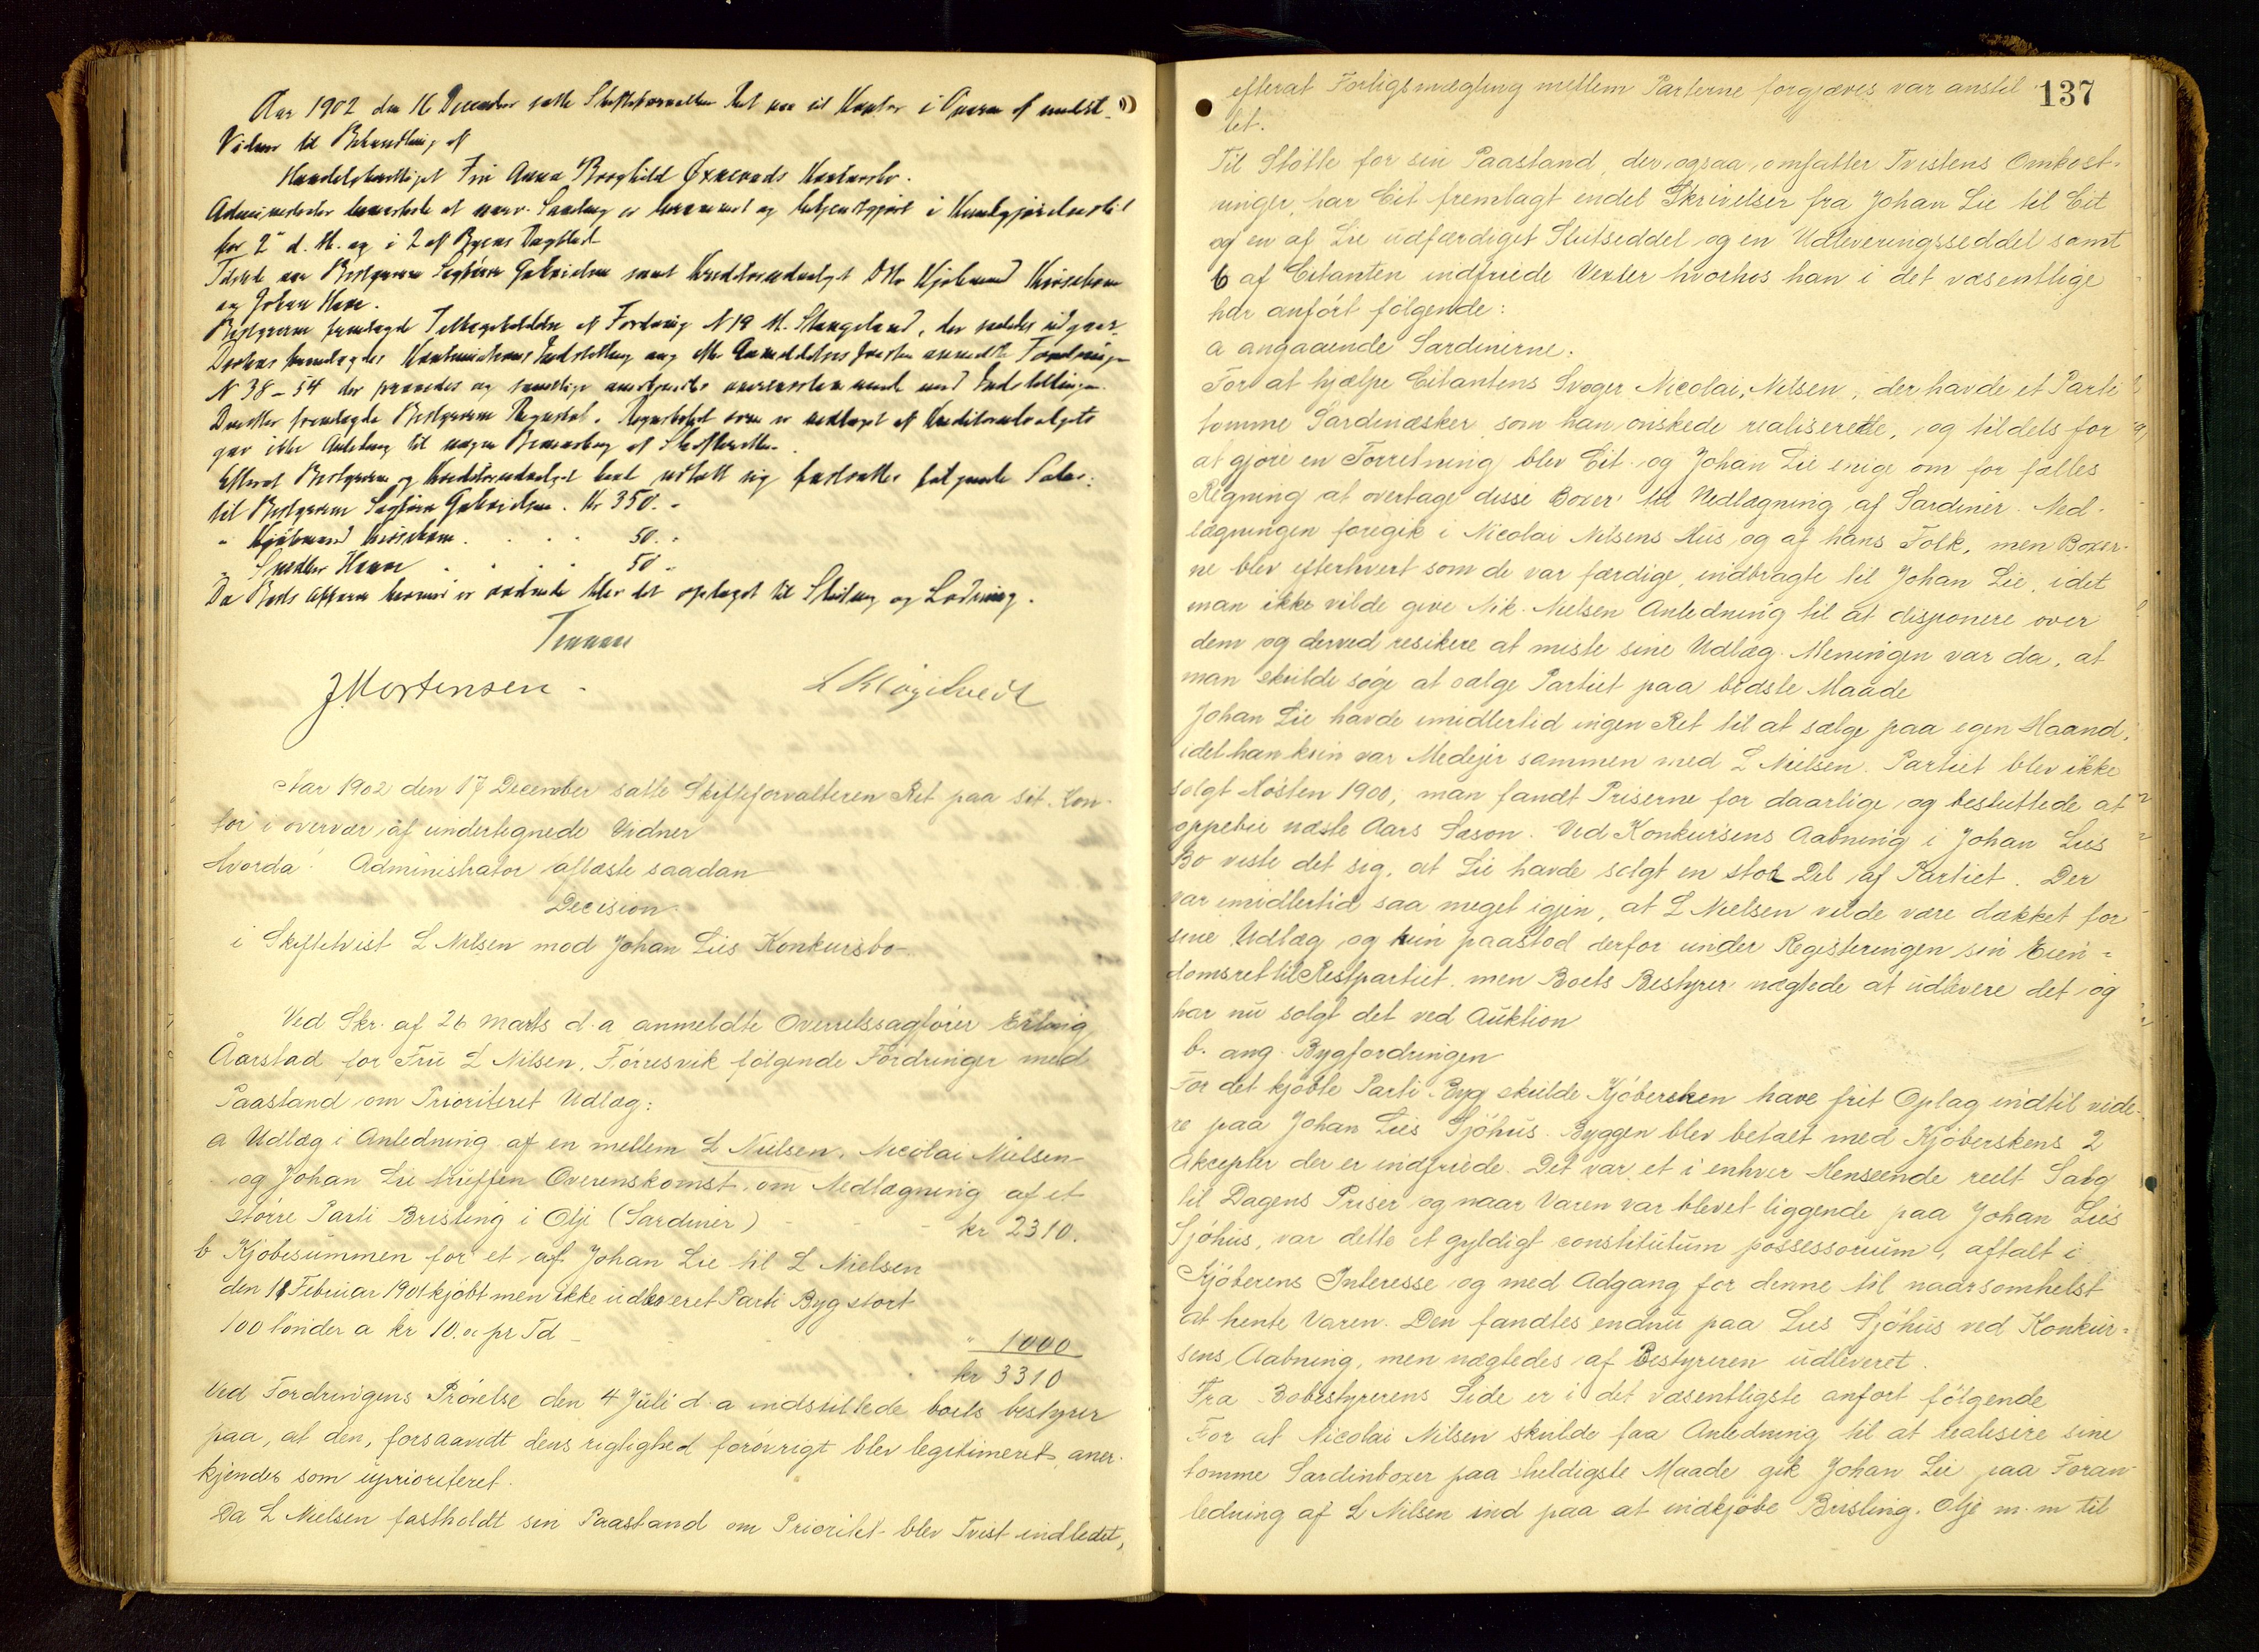 Aar 1902 den 16 December satte Skifteforvalteren Ret paa sit Kontor i Overvær af undert.
Vidner til Behandling af
Handelsberettiget Frü Anna Borghild Øxnevads Konkursbo.
Administrator bemærkede at nærv. Samling er berammet og bekjendtgjort i Kundgjørelsestid.
for 2' d. M. og i 2 af Byens Dagblade
Tilstede var Bestyreren Sagfører Gabrielsen samt Kreditorudvalget DHr Kjøbmand
og Johan Haave.
Bestyreren fremlagde Tilbagekaldelse af Fordring N 19 M. Stangeland, der saaledes udgaar.
Derhos fremlagdes Bestyrerens Indstilling ang. efter Anmeldelsesfristen anmeldte Fordringer
N 38 - 54 der prøvedes og samtlige anerkjendtes overensstemmende med Indstillingen.
Derefter fremlagde Bestyreren Regnskab. Regnskabet som er vedtaget af Kreditorudvalget
gav ikke Anledning til nogen Bemærkning af Skifteretten.
Efterat Bestyreren og Kreditorudvalget havde udtalt sig fastsattes følgende Salær:
til Bestyreren Sagfører Gabrielsen. Kr 350. -
" Kjøbmand . . . . 50. -
" Snedker Haave . . . . 50 -
Da Boets Affærer hermed er ordnede blev det optaget til Slutning og Lodning.
J Mortensen.
Aar 1902 den 17 December satte Skifteforvalteren Ret paa sit Kon-
tor i overvær af undertegnede Vidner
Hvorda: Administrator aflæste saadan
Decision
i Skiftetvist L Nilsen mod Johan Lies Konkursbo
Ved Skr. af 26 Marts d. a anmeldte Overretssagfører Erling
Aarstad for Frü L Nilsen, Førresvik følgende Fordringer med
Paastand om Prioriteret Udlæg:
a Udlæg i Anledning af en mellem L Nielsen, Nicolai Nielsen
og Johan Lie truffen Overenskomst om Nedlægning af et
større Parti Brisling i Olje (Sardiner) - - - kr 2310.
b Kjøbesummen for et af Johan Lie til L Nielsen
den 18 Februar 1901 kjøbt men ikke udleveret Parti Byg stort
100 tønder a kr 10.00 pr Td - - - " 1000
kr 3310
Ved Fordringens Prøvelse den 4 Juli d. a indstillede boets bestyrer
paa, at den, forsaavidt dens rigtighed forøvrigt blev legitimeret, aner-
kjendes som uprioriteret.
Da L Nielsen fastholdt sin Paastand om Prioritet blev Tvist indledet,
137
efterat Forligsmægling mellem Parterne forgjæves var anstil
let.
Til Støtte for sin Paastand, der ogsaa omfatter Tvistens Omkost-
ninger, har Cit fremlagt endel Skrivelser fra Johan Lie til Cit
og en af Lie udfærdiget Slutseddel og en Udleveringsseddel samt
6 af Citanten indfriede Vexler hvorhos han i det væsentlige
har anført følgende:
a angaaende Sardinerne:
For at hjælpe Citantens Svoger Nicolai Nilsen, der havde et Parti
tomme Sardinæsker som han ønskede realiserede, og tildels for
at gjøre en Forretning blev Cit. og Johan Lie enige om for fælles
Regning at overtage disse Boxer til Nedlægning af Sardiner. Ned-
lægningen foregik i Nicolai Nilsens Hus og af hans Folk, men Boxer-
ne blev efterhvert som de var færdige, indbragte til Johan Lie, idet
man ikke vilde give Nik. Nielsen Anledning til at disponere over
dem og derved resikere at miste sine Udlæg. Meningen var da, at
man skulde søge at sælge Partiet paa bedste Maade
Johan Lie havde imidlertid ingen Ret til at sælge paa egen Haand,
idet han kun var Medejer sammen med L Nielsen. Partiet blev ikke
solgt Høsten 1900; man fandt Priserne for daarlige og besluttede at
oppebie næste Aars Sæson. Ved Konkursens Aabning i Johan Lies
Bo viste det sig, at Lie havde solgt en stor Del af Partiet. Der
var imidlertid saa meget igjen, at L Nielsen vilde være dækket for
sine Udlæg og hun paastod derfor under Registeringen sin Eien-
domsret til Restpartiet, men Boets Bestyrer nægtede at udlevere det og
har nu solgt det ved Auktion
b. ang. Bygfordringen
For det kjøbte Parti Byg skulde Kjøbersken have frit Oplag indtil vide-
re paa Johan Lies Sjøhus. Byggen blev betalt med Kjøberskens 2
Akcepter der er indfriede. Det var et i enhver Henseende reelt Salg
til Dagens Priser og naar Varen var blevet liggende paa Johan Lies
Sjøhus, var dette et gyldigt constitutum possessorium, aftalt i
Kjøberens Interesse og med Adgang for denne til naarsomhelst
at hente Varen. Den fandtes endnu paa Lies Sjøhus ved Konkur-
sens Aabning, men nægtedes af Bestyreren udleveret.
Fra Bobestyrerens Side er i det væsentligste anført følgende
For at Nicolai Nilsen skulde faa Anledning til at realisere sine
tomme Sardinboxer paa heldigste Maade gik Johan Lie paa Foran-
ledning af L Nilsen ind paa at indkjøbe Brisling. Olje m. m til